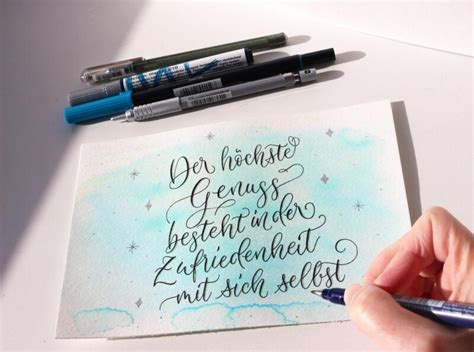 Der höchste
Genuss
besteht in der
Zufriedenheit
mit sich selbst